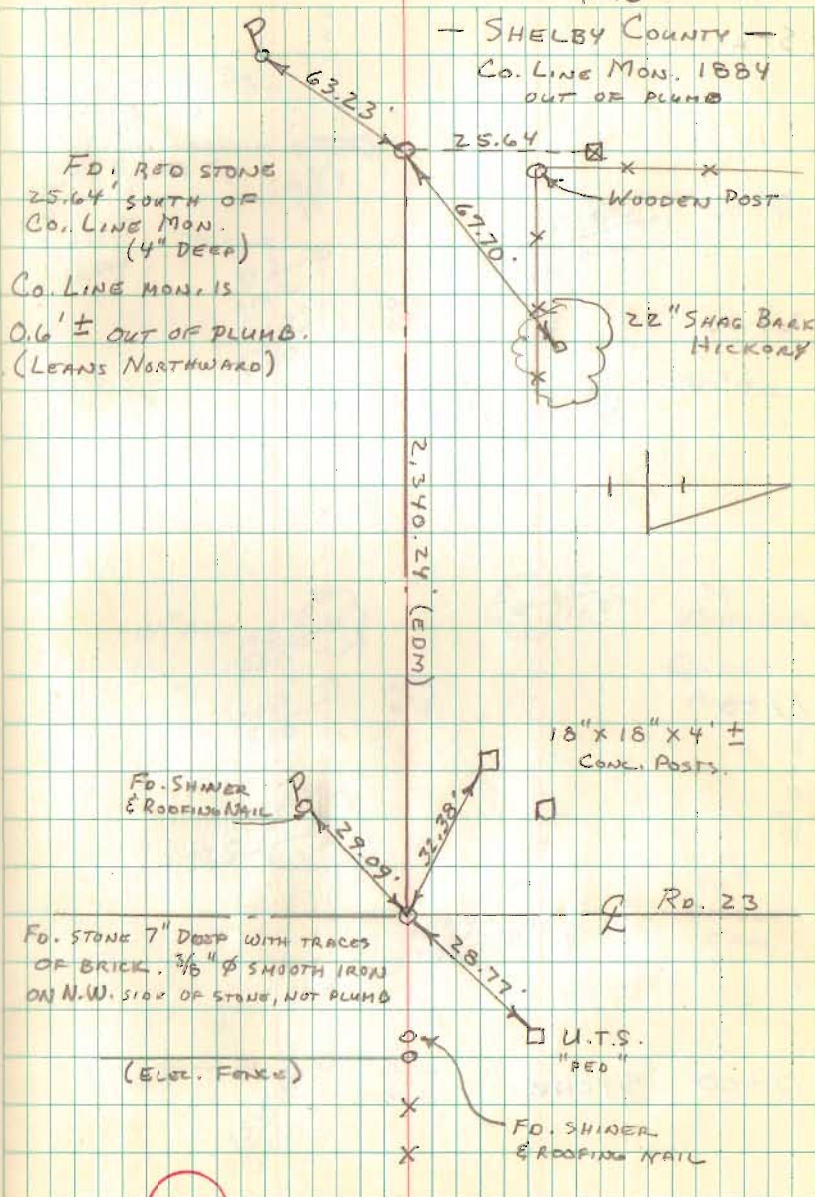 — SHELBY COUNTY —
CO. LINE MON. 1884
OUT OF PLUMB
P
63.23'
25.64
WOODEN POST
FD. RED STONE
25.64' SOUTH OF
CO. LINE MON.
(4" DEEP)
CO. LINE MON. IS
0.6' ± OUT OF PLUMB.
(LEANS NORTHWARD)
67.70'
22" SHAG BARK
HICKORY
2,340.24' (EDM)
18" X 18" X 4' ±
CONC. POSTS.
FD. SHINER
& ROOFING NAIL
P
29.09'
32.38'
℄ RD. 23
FD. STONE 7" DEEP WITH TRACES
OF BRICK. 3/8" Ø SMOOTH IRON
ON N.W. SIDE OF STONE, NOT PLUMB
28.77'
U.T.S.
"PED"
(ELEC. FENCE)
FD. SHINER
& ROOFING NAIL